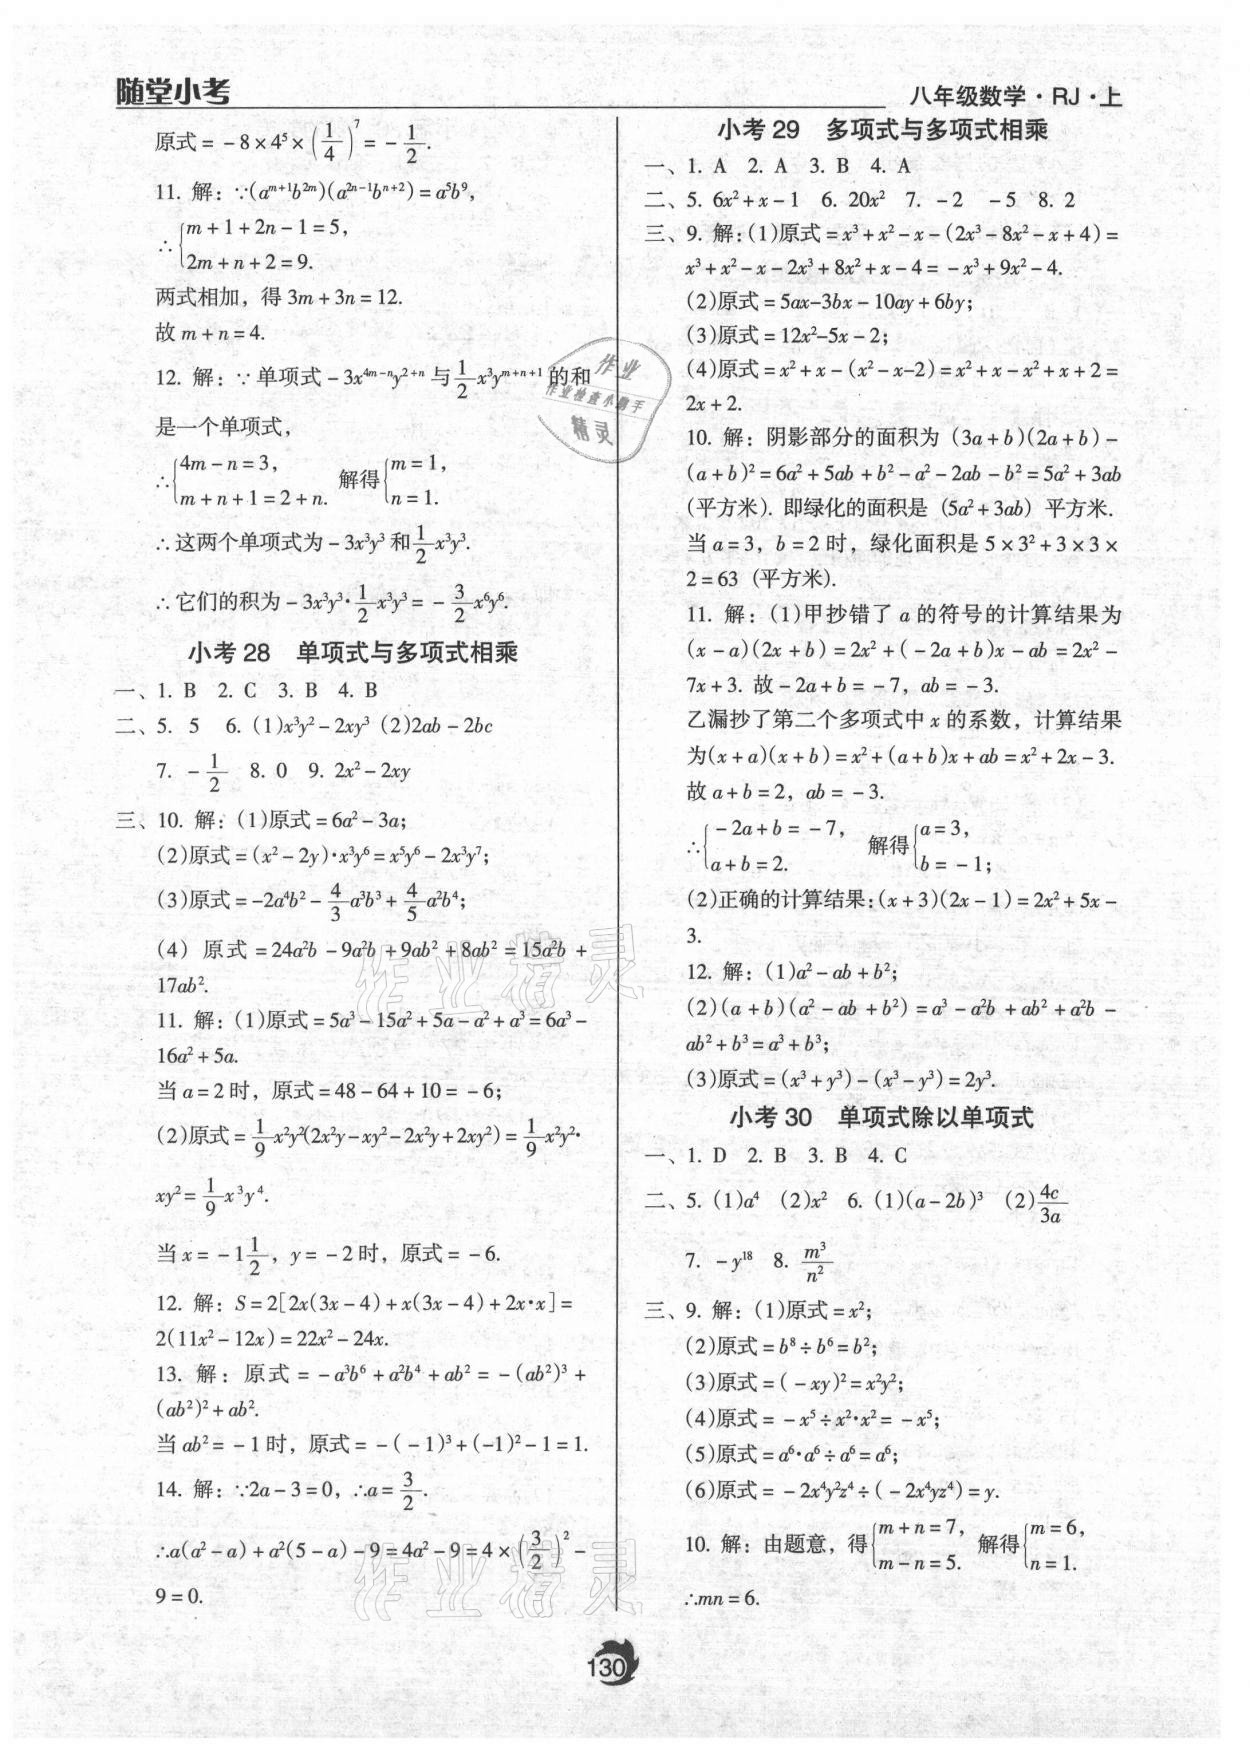 随堂小考
八年级数学·RJ·上
原式=-8×4⁵×(1/4)⁷=-1/2.
11. 解：∵(aᵐ⁺¹b²ᵐ)(a²ⁿ⁻¹bⁿ⁺²)=a⁵b⁹,
∴{m+1+2n-1=5,
2m+n+2=9.
两式相加，得3m+3n=12.
故m+n=4.
12. 解：∵单项式-3x⁴ᵐ⁻ⁿy²⁺ⁿ与1/2x³yᵐ⁺ⁿ⁺¹的和
是一个单项式，
∴{4m-n=3, 解得{m=1,
m+n+1=2+n. n=1.
∴这两个单项式为-3x³y³和1/2x³y³.
∴它们的积为-3x³y³·1/2x³y³=-3/2x⁶y⁶.
小考28 单项式与多项式相乘
一、1. B 2. C 3. B 4. B
二、5. 5 6. (1)x³y²-2xy³ (2)2ab-2bc
7. -1/2 8. 0 9. 2x²-2xy
三、10. 解：(1)原式=6a²-3a;
(2)原式=(x²-2y)·x³y⁶=x⁵y⁶-2x³y⁷;
(3)原式=-2a⁴b²-4/3a³b³+4/5a²b⁴;
(4)原式=24a²b-9a²b+9ab²+8ab²=15a²b+
17ab².
11. 解：(1)原式=5a³-15a²+5a-a²+a³=6a³-
16a²+5a.
当a=2时，原式=48-64+10=-6;
(2)原式=1/9x²y²(2x²y-xy²-2x²y+2xy²)=1/9x²y²·
xy²=1/9x³y⁴.
当x=-1 1/2, y=-2时，原式=-6.
12. 解：S=2[2x(3x-4)+x(3x-4)+2x·x]=
2(11x²-12x)=22x²-24x.
13. 解：原式=-a³b⁶+a²b⁴+ab²=-(ab²)³+
(ab²)²+ab².
当ab²=-1时，原式=-(-1)³+(-1)²-1=1.
14. 解：∵2a-3=0, ∴a=3/2.
∴a(a²-a)+a²(5-a)-9=4a²-9=4×(3/2)²-
9=0.
小考29 多项式与多项式相乘
一、1. A 2. A 3. B 4. A
二、5. 6x²+x-1 6. 20x² 7. -2 -5 8. 2
三、9. 解：(1)原式=x³+x²-x-(2x³-8x²-x+4)=
x³+x²-x-2x³+8x²+x-4=-x³+9x²-4.
(2)原式=5ax-3bx-10ay+6by;
(3)原式=12x²-5x-2;
(4)原式=x²+x-(x²-x-2)=x²+x-x²+x+2=
2x+2.
10. 解：阴影部分的面积为(3a+b)(2a+b)-
(a+b)²=6a²+5ab+b²-a²-2ab-b²=5a²+3ab
(平方米). 即绿化的面积是(5a²+3ab)平方米.
当a=3, b=2时，绿化面积是5×3²+3×3×
2=63(平方米).
11. 解：(1)甲抄错了a的符号的计算结果为
(x-a)(2x+b)=2x²+(-2a+b)x-ab=2x²-
7x+3. 故-2a+b=-7, ab=-3.
乙漏抄了第二个多项式中x的系数，计算结果
为(x+a)(x+b)=x²+(a+b)x+ab=x²+2x-3.
故a+b=2, ab=-3.
∴{-2a+b=-7, 解得{a=3,
a+b=2. b=-1;
(2)正确的计算结果：(x+3)(2x-1)=2x²+5x-
3.
12. 解：(1)a²-ab+b²;
(2)(a+b)(a²-ab+b²)=a³-a²b+ab²+a²b-
ab²+b³=a³+b³;
(3)原式=(x³+y³)-(x³-y³)=2y³.
小考30 单项式除以单项式
一、1. D 2. B 3. B 4. C
二、5. (1)a⁴ (2)x² 6. (1)(a-2b)³ (2)4c/3a
7. -y¹⁸ 8. m³/n²
三、9. 解：(1)原式=x²;
(2)原式=b⁸÷b⁶=b²;
(3)原式=(-xy)²=x²y²;
(4)原式=-x⁵÷x²·x²=-x⁵;
(5)原式=a⁶·a⁶÷a⁶=a⁶;
(6)原式=-2x⁴y²z⁴÷(-2x⁴yz⁴)=y.
10. 解：由题意，得{m+n=7, 解得{m=6,
m-n=5. n=1.
∴mn=6.
130
作业
作业检查小助手
精灵
作业精灵
作业精灵